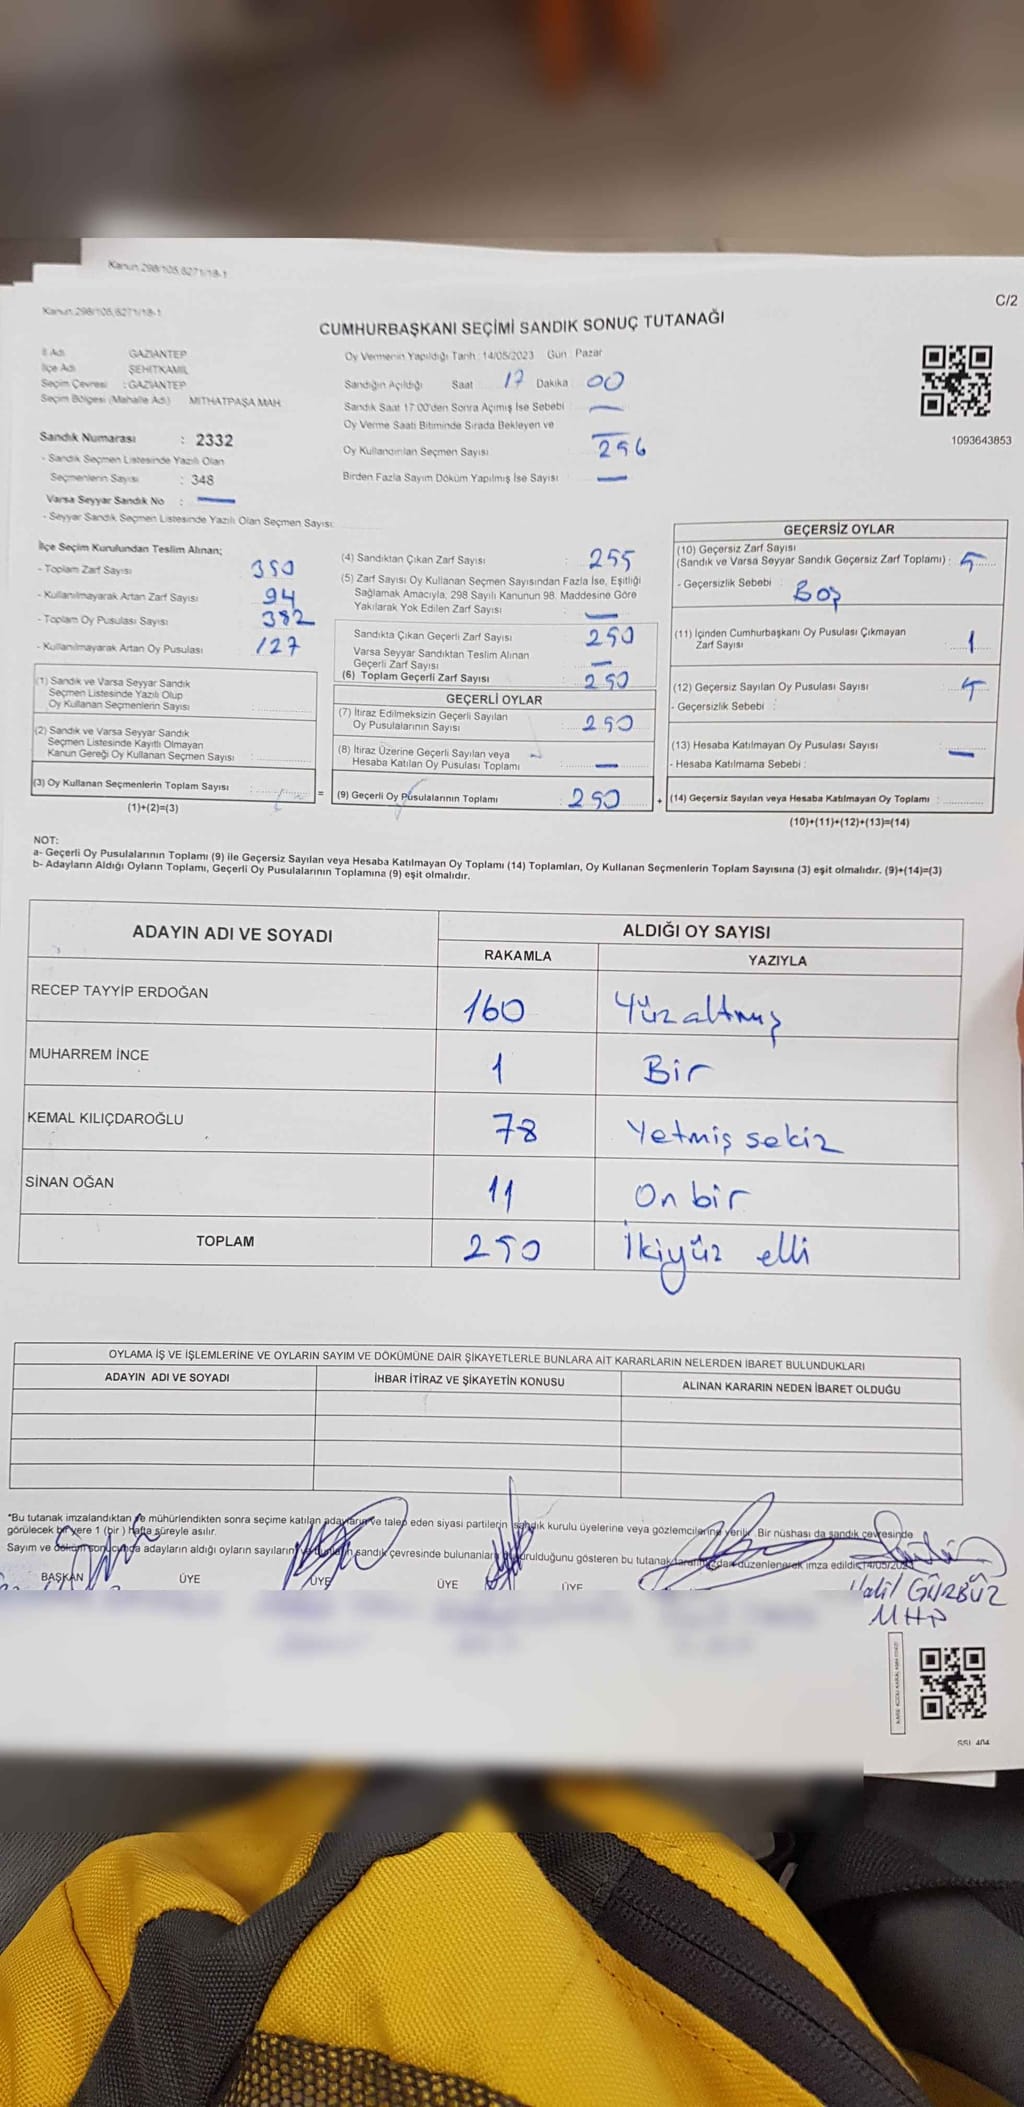 Kanun:298/105,6271/18-1
Kanun:298/105,6271/18-1
C/2
CUMHURBAŞKANI SEÇİMİ SANDIK SONUÇ TUTANAĞI
İl Adı GAZİANTEP
İlçe Adı ŞEHİTKAMİL
Seçim Çevresi : GAZİANTEP
Seçim Bölgesi (Mahalle Adı) MİTHATPAŞA MAH.
Oy Vermenin Yapıldığı Tarih : 14/05/2023 Gün : Pazar
Sandığın Açıldığı Saat 17 Dakika 00
Sandık Saat 17:00'den Sonra Açımış İse Sebebi : —
Oy Verme Saati Bitiminde Sırada Bekleyen ve —
Oy Kullandırılan Seçmen Sayısı 256
Birden Fazla Sayım Döküm Yapılmış İse Sayısı : —
1093643853
Sandık Numarası : 2332
- Sandık Seçmen Listesinde Yazılı Olan
Seçmenlerin Sayısı : 348
Varsa Seyyar Sandık No : —
- Seyyar Sandık Seçmen Listesinde Yazılı Olan Seçmen Sayısı:
İlçe Seçim Kurulundan Teslim Alınan;
- Toplam Zarf Sayısı 350
- Kullanılmayarak Artan Zarf Sayısı 94
- Toplam Oy Pusulası Sayısı 382
- Kullanılmayarak Artan Oy Pusulası 127
(1) Sandık ve Varsa Seyyar Sandık
Seçmen Listesinde Yazılı Olup
Oy Kullanan Seçmenlerin Sayısı :
(2) Sandık ve Varsa Seyyar Sandık
Seçmen Listesinde Kayıtlı Olmayan
Kanun Gereği Oy Kullanan Seçmen Sayısı :
(3) Oy Kullanan Seçmenlerin Toplam Sayısı :
(1)+(2)=(3)
=
(4) Sandıktan Çıkan Zarf Sayısı : 255
(5) Zarf Sayısı Oy Kullanan Seçmen Sayısından Fazla İse, Eşitliği
Sağlamak Amacıyla, 298 Sayılı Kanunun 98. Maddesine Göre
Yakılarak Yok Edilen Zarf Sayısı : —
Sandıkta Çıkan Geçerli Zarf Sayısı : 250
Varsa Seyyar Sandıktan Teslim Alınan
Geçerli Zarf Sayısı : —
(6) Toplam Geçerli Zarf Sayısı : 250
GEÇERLİ OYLAR
(7) İtiraz Edilmeksizin Geçerli Sayılan
Oy Pusulalarının Sayısı : 250
(8) İtiraz Üzerine Geçerli Sayılan veya
Hesaba Katılan Oy Pusulası Toplamı : —
(9) Geçerli Oy Pusulalarının Toplamı : 250
+
GEÇERSİZ OYLAR
(10) Geçersiz Zarf Sayısı
(Sandık ve Varsa Seyyar Sandık Geçersiz Zarf Toplamı) : 5
- Geçersizlik Sebebi : Boş
(11) İçinden Cumhurbaşkanı Oy Pusulası Çıkmayan
Zarf Sayısı : 1
(12) Geçersiz Sayılan Oy Pusulası Sayısı :
- Geçersizlik Sebebi :
(13) Hesaba Katılmayan Oy Pusulası Sayısı : —
- Hesaba Katılmama Sebebi :
(14) Geçersiz Sayılan veya Hesaba Katılmayan Oy Toplamı :
(10)+(11)+(12)+(13)=(14)
NOT:
a- Geçerli Oy Pusulalarının Toplamı (9) ile Geçersiz Sayılan veya Hesaba Katılmayan Oy Toplamı (14) Toplamları, Oy Kullanan Seçmenlerin Toplam Sayısına (3) eşit olmalıdır. (9)+(14)=(3)
b- Adayların Aldığı Oyların Toplamı, Geçerli Oy Pusulalarının Toplamına (9) eşit olmalıdır.
ADAYIN ADI VE SOYADI ALDIĞI OY SAYISI
RAKAMLA YAZIYLA
RECEP TAYYİP ERDOĞAN 160 Yüzaltmış
MUHARREM İNCE 1 Bir
KEMAL KILIÇDAROĞLU 78 Yetmiş sekiz
SİNAN OĞAN 11 On bir
TOPLAM 250 İkiyüz elli
OYLAMA İŞ VE İŞLEMLERİNE VE OYLARIN SAYIM VE DÖKÜMÜNE DAİR ŞİKAYETLERLE BUNLARA AİT KARARLARIN NELERDEN İBARET BULUNDUKLARI
ADAYIN ADI VE SOYADI İHBAR İTİRAZ VE ŞİKAYETİN KONUSU ALINAN KARARIN NEDEN İBARET OLDUĞU
*Bu tutanak imzalandıktan ve mühürlendikten sonra seçime katılan adayların ve talep eden siyasi partilerin sandık kurulu üyelerine veya gözlemcilerine verilir. Bir nüshası da sandık çevresinde
görülecek bir yere 1 (bir ) hafta süreyle asılır.
Sayım ve döküm sonucunda adayların aldığı oyların sayılarını sandık çevresinde bulunanlara duyurulduğunu gösteren bu tutanak tarafımızdan düzenlenerek imza edildi.14/05/2023
BAŞKAN ÜYE ÜYE ÜYE ÜYE
Halil GÜRBÜZ
MHP